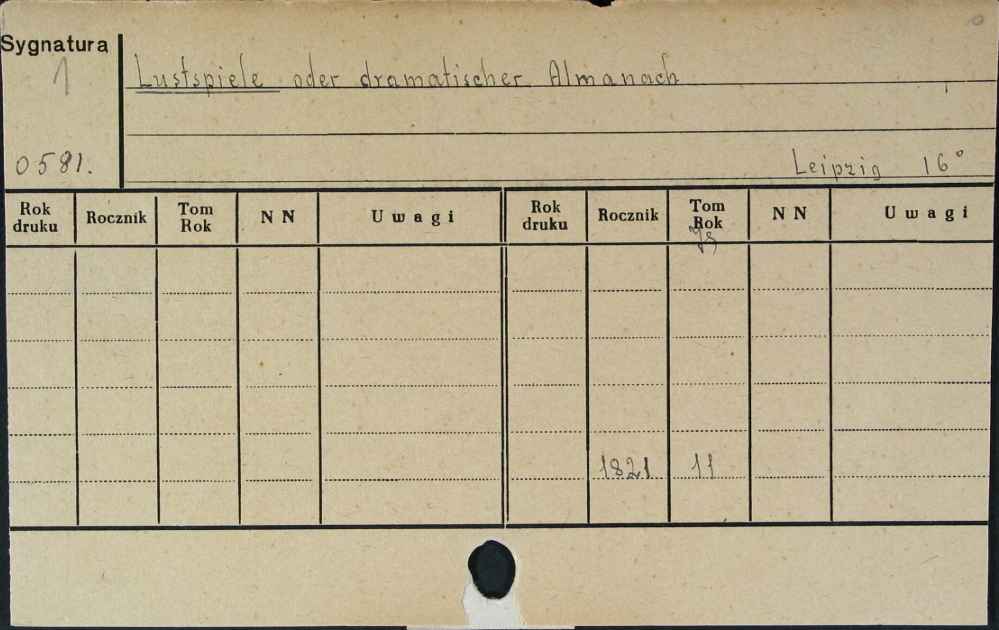 Sygnatura
1
Lustspiele oder dramatischer Almanach
0581.
Leipzig 16°
Rok druku Rocznik Tom Rok NN Uwagi Rok druku Rocznik Tom Rok NN Uwagi
1821 11